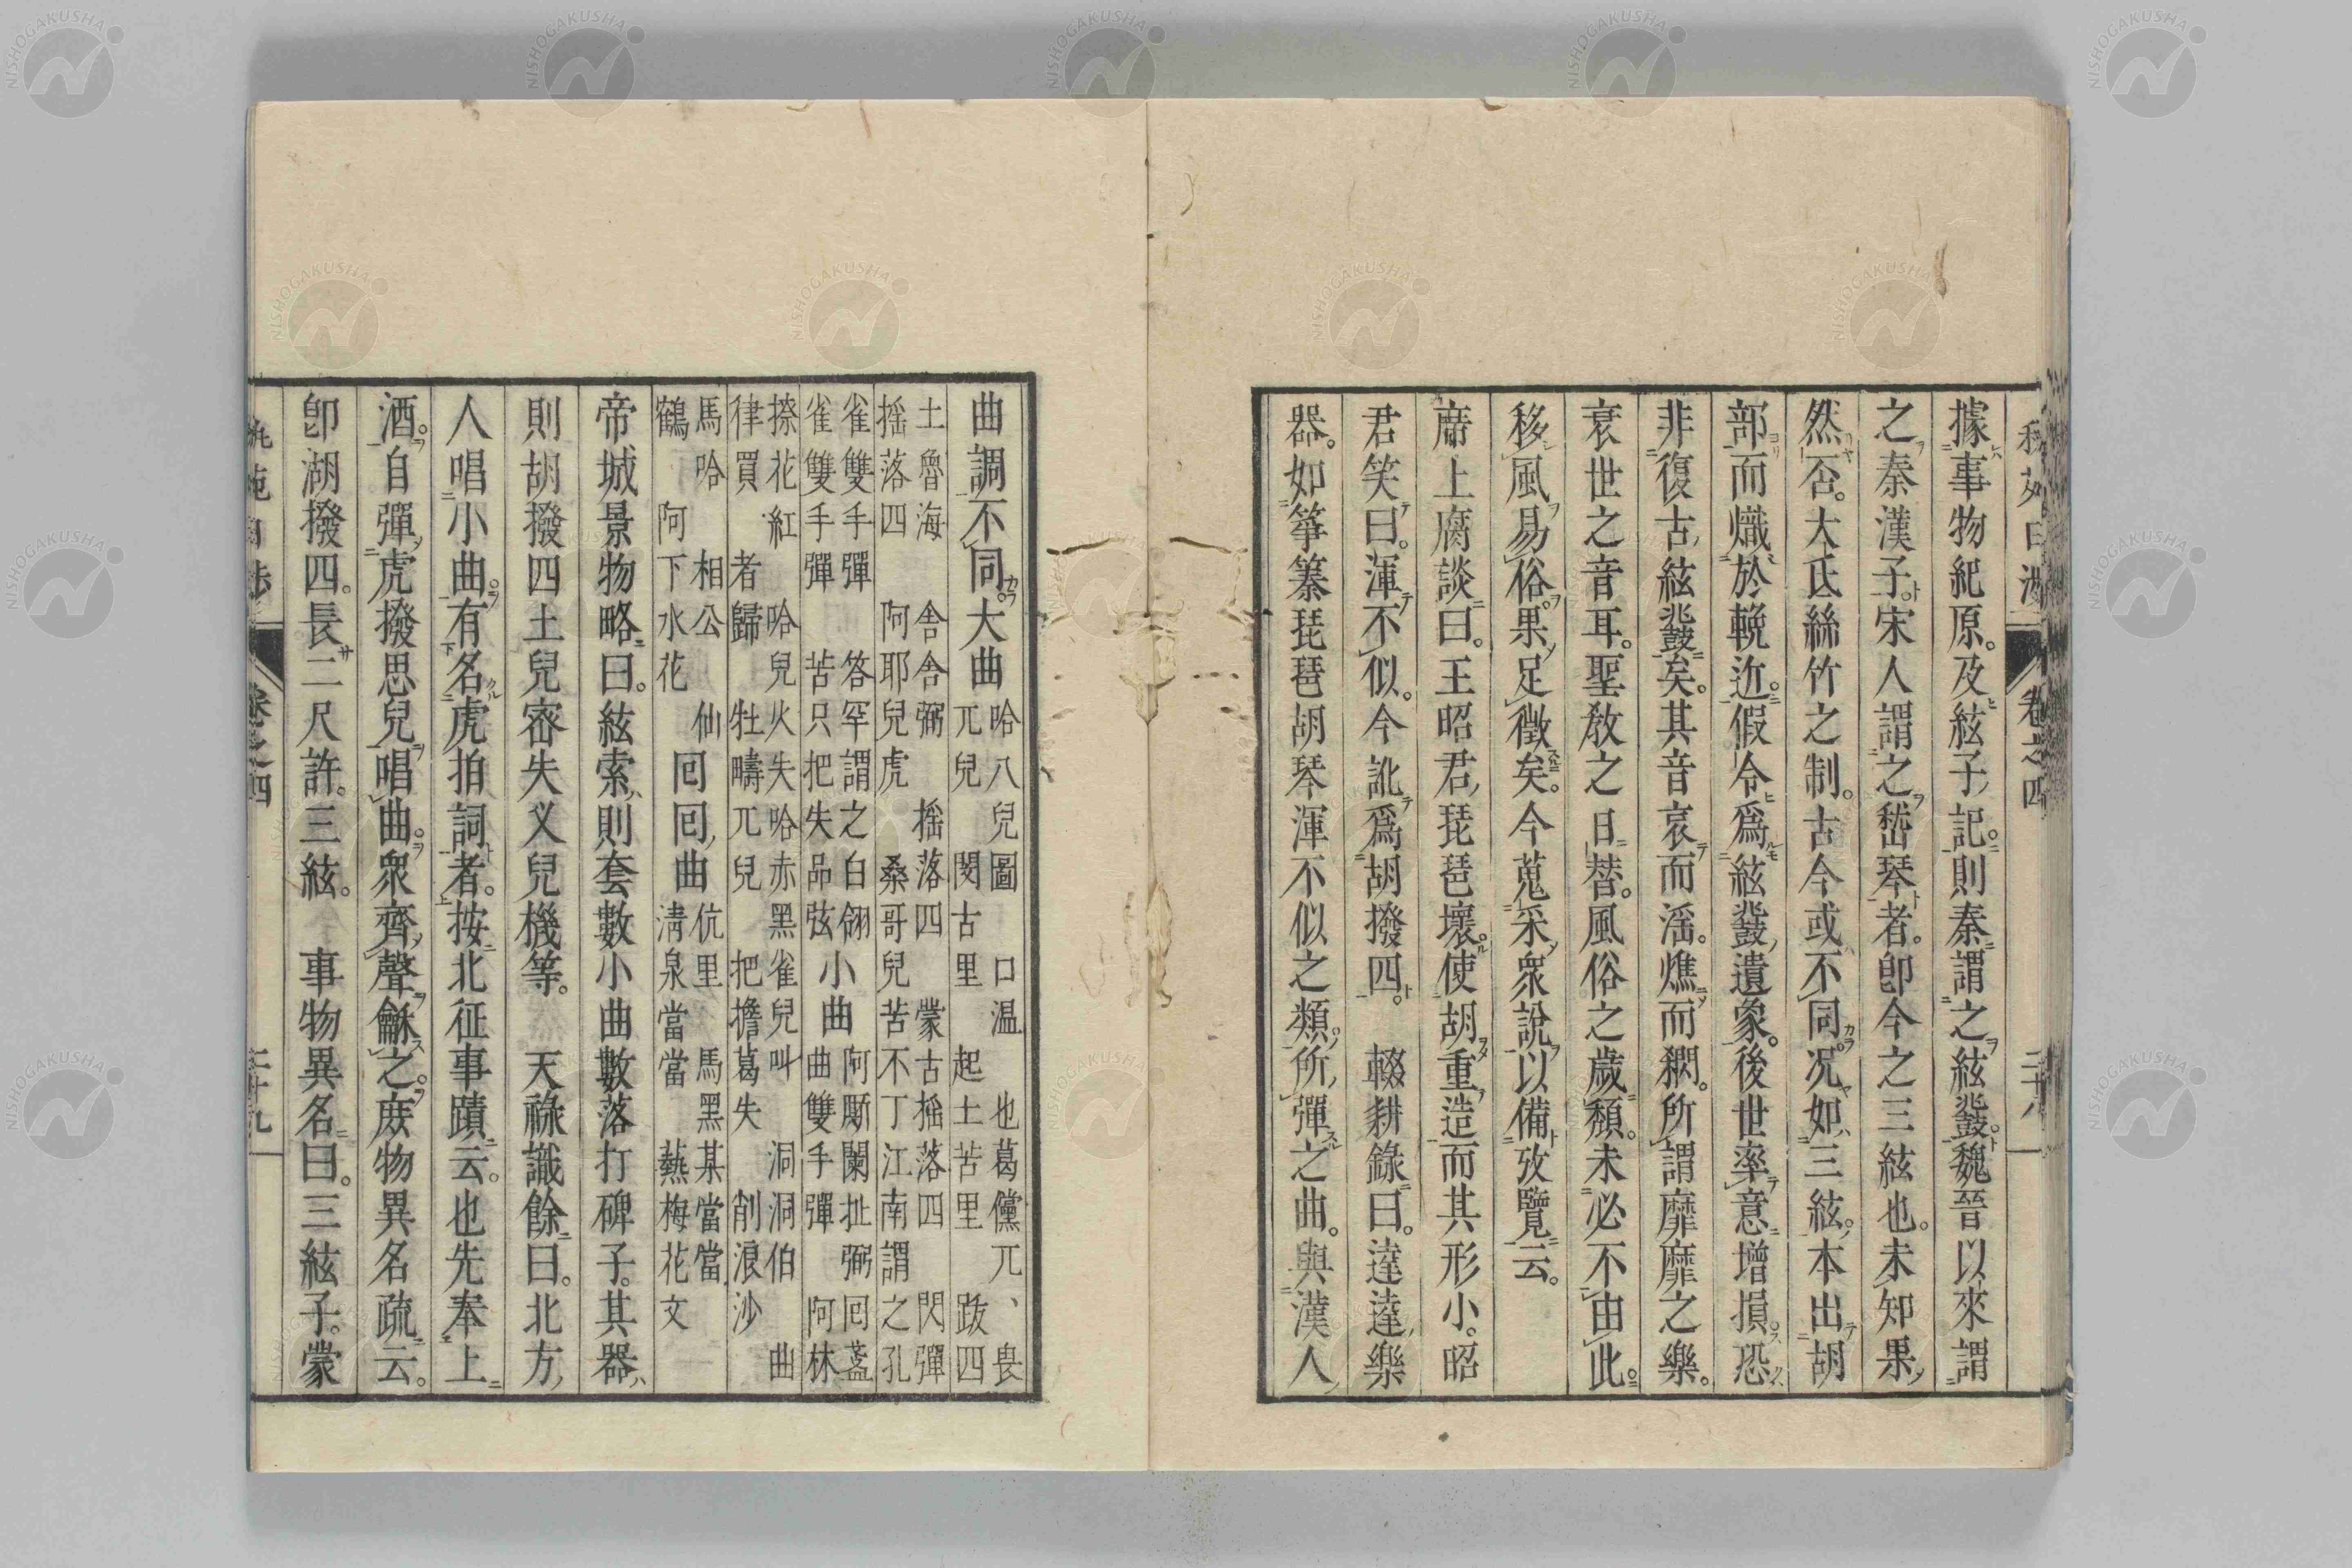 據事物紀原。及絃子記。則秦謂之絃鼗。魏晉以來謂
之秦漢子。宋人謂之嵆琴者。卽今之三絃也。未知果
然否。大氐絲竹之制。古今或不同。况如三絃。本出胡
部而熾於輓近。假令爲絃鼗遺象。後世率意增損。恐
非復古絃鼗矣。其音哀而滛。燋而。所謂靡靡之樂。
衰世之音耳。聖敎之日替。風俗之歲頽。未必不由此。
移風易俗。果足徵矣。今蒐采衆說。以備攷覽云。
席上腐談曰。王昭君琵琶壞。使胡重造。而其形小。昭
君笑曰。渾不似。今訛爲胡撥四。　輟耕錄曰。達達樂
器。如箏䇍琵琶胡琴渾不似之類。所彈之曲。與漢人
曲調不同。大曲
哈八兒圖　口温　也葛儻兀、畏
兀兒　閔古里　起土苦里　跋四
土魯海　舎舎弼　揺落四　蒙古揺落四　閃彈
揺落四　阿耶兒虎　桑哥兒苦不丁江南謂之孔
雀雙手彈　答罕謂之白翎
雀雙手彈　苦只把失品弦
小曲
阿厮闌扯弼囘盞
曲雙手彈　阿林
捺花紅　哈兒火失哈赤黑雀兒叫　洞洞伯　曲
律買　者歸　牡疇兀兒　把擔葛失　削浪沙
馬哈　相公　仙
鶴　阿下水花
囘囘曲
伉里　馬黑某當當
淸泉當當　爇梅花文
帝城景物略曰。絃索則套數小曲數落打碑子。其器
則胡撥四土兒宻失乂兒機等。　天祿識餘曰。北方
人唱小曲。有名虎拍詞者。按北征事蹟云。也先奉上
酒。自彈虎撥思兒唱曲。衆齊聲龢之。庻物異名疏云。
卽湖撥四。長二尺許。三絃。　事物異名曰。三絃子。蒙
卷之四
二十八
卷之四
二十九
NISHOGAKUSHA